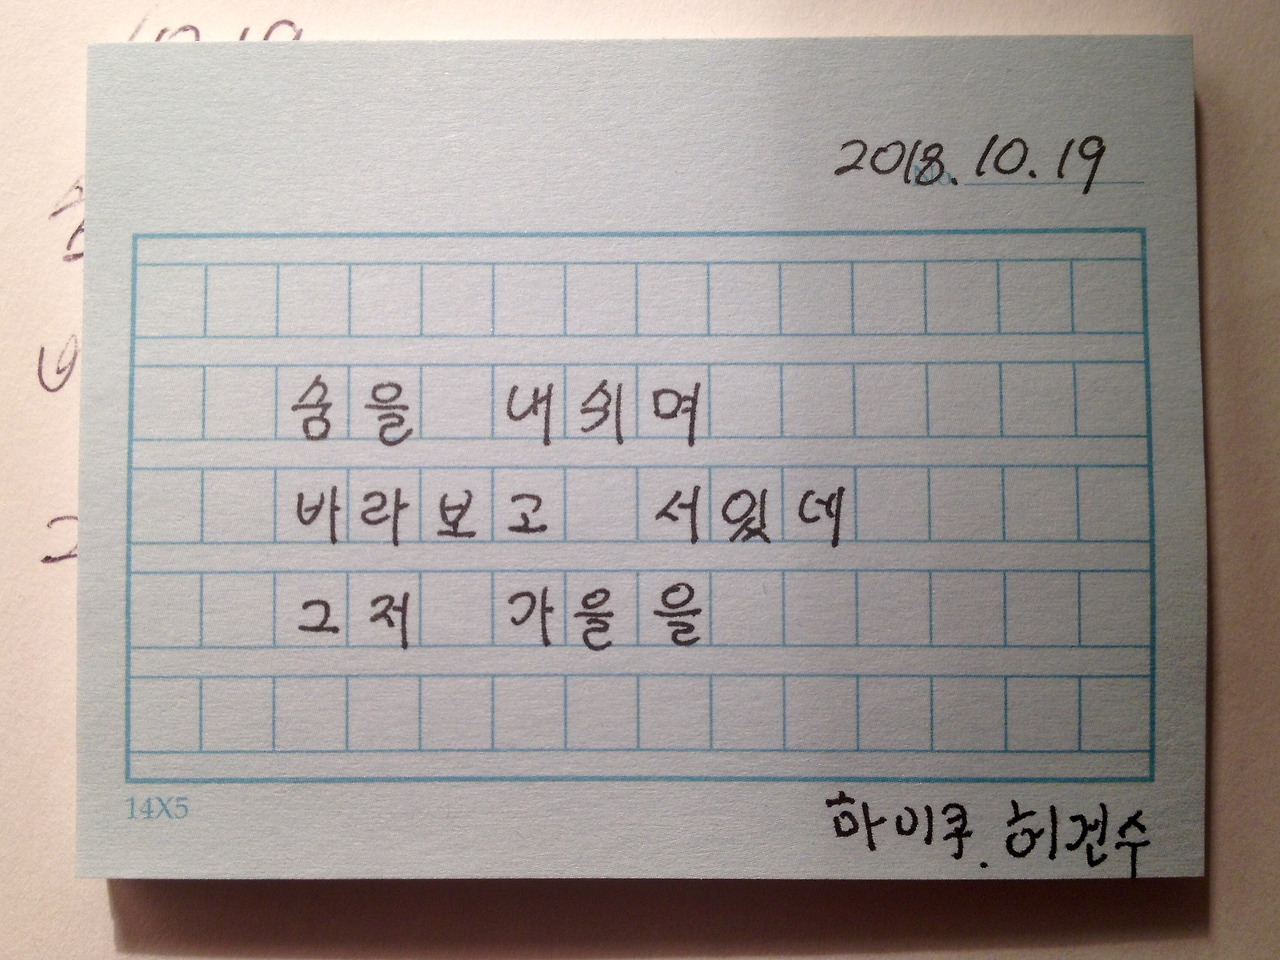 2018.10.19
숨을 내쉬며
바라보고 서있데
그저 가을을
14X5
하이쿠. 허건수